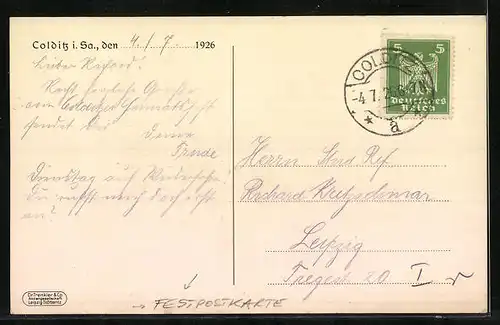 Colditz i. Sa., den 4./7. 1926
Lieber Richard!
Recht herzliche Grüße
vom Colditzer Heimatfest
sendet Dir Deine
Trude
Dienstag auf Wiedersehn
Du rufst mich doch erst
an?
COLDITZ
-4.7.26
* * a
5 5
Deutsches
Reich
Herrn Stud Ref
Richard
Leipzig
20 I r
Dr. Trenkler & Co.
Aktiengesellschaft
Leipzig-Stötteritz
→ FESTPOSTKARTE